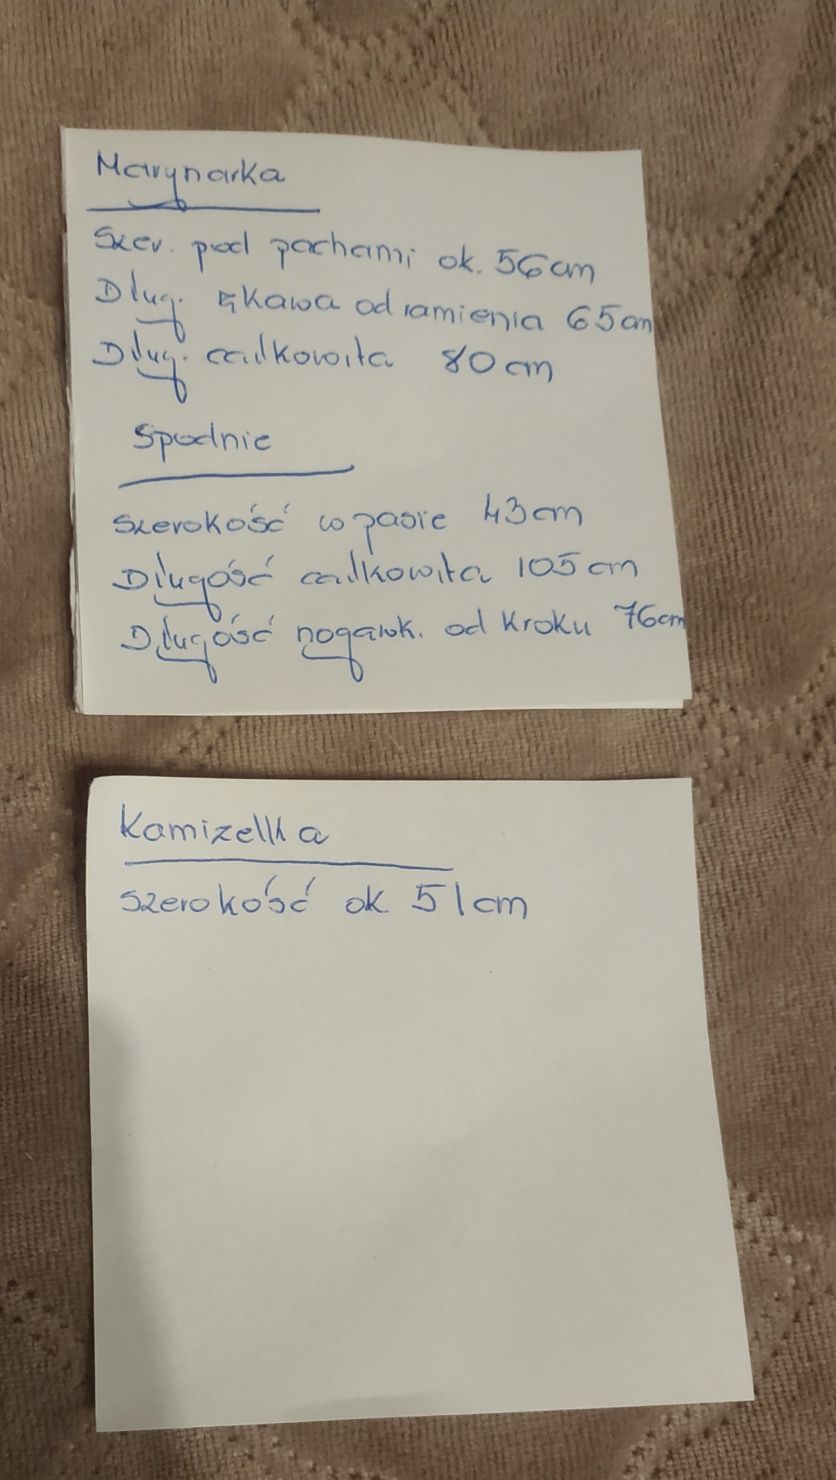 Marynarka
Szer. pod pachami ok. 56cm
Dług. rękawa od ramienia 65cm
Dług. całkowita 80cm
Spodnie
Szerokość w pasie 43cm
Długość całkowita 105cm
Długość nogawk. od kroku 76cm
Kamizelka
Szerokość ok. 51cm